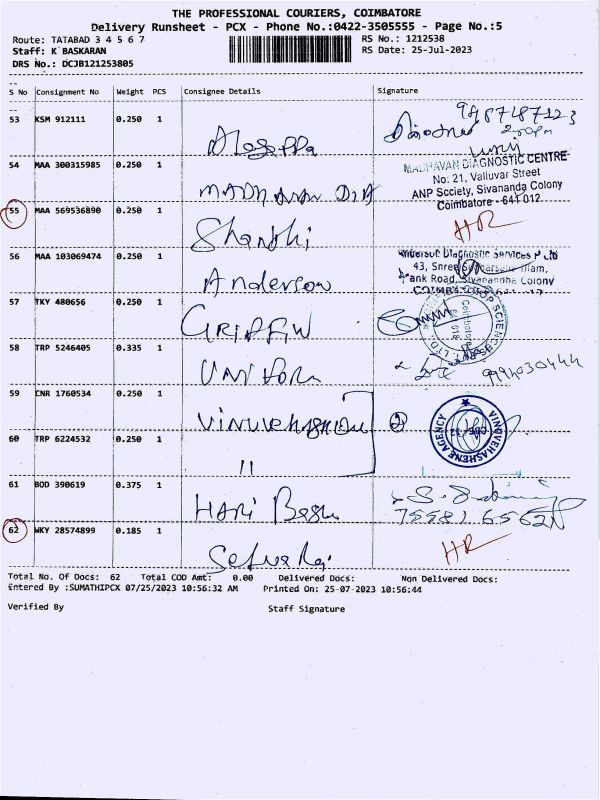 THE PROFESSIONAL COURIERS, COIMBATORE
Delivery Runsheet - PCX - Phone No.:0422-3505555 - Page No.:5
Route: TATABAD 3 4 5 6 7 RS No.: 1212538
Staff: K BASKARAN RS Date: 25-Jul-2023
DRS No.: DCJB121253805
S No Consignment No Weight PCS Consignee Details Signature
53 KSM 912111 0.250 1
Alagappa
54 MAA 300315985 0.250 1 MADHAVAN DIAGNOSTIC CENTRE
No: 21, Valluvar Street
ANP Society, Sivananda Colony
Coimbatore - 641 012
MADHAVAN DIA
55 MAA 569536890 0.250 1 HR
Shanthi
56 MAA 103069474 0.250 1
Anderson
57 TKY 480656 0.250 1
GRIFFIN
58 TRP 5246405 0.335 1
UNIFORM 9994330444
59 CNR 1760534 0.250 1
VINUVEHASHENE 2 VINUVEHASHENE AGENCY
60 TRP 6224532 0.250 1
11
61 BOD 390619 0.375 1
HARI Bagu 75581 65628
62 WKY 28574899 0.185 1 HR
Selva Raj
Total No. Of Docs: 62 Total COD Amt: 0.00 Delivered Docs: Non Delivered Docs:
Entered By :SUMATHIPCX 07/25/2023 10:56:32 AM Printed On: 25-07-2023 10:56:44
Verified By Staff Signature